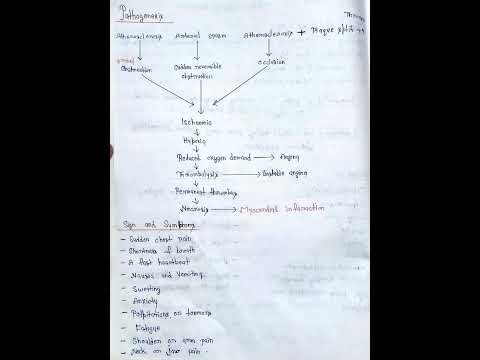 Pathogenesis
Atherosclerosis Arterial spasm Atherosclerosis + Plaque
gradual
obstruction Sudden reversible obstruction occlusion
Ischaemia
Hypoxia
Reduced oxygen demand → Angina
Thrombolysis → Unstable angina
Permanent thrombus
Necrosis → Myocardial infarction
Sign and Symptoms
- Sudden chest pain
- Shortness of breath
- A fast heartbeat
- Nausea and Vomiting
- Sweating
- Anxiety
- Palpitations or
- Fatigue
- Shoulder or arm pain
- Neck or jaw pain